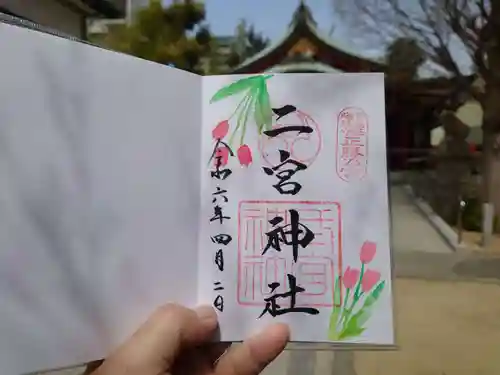 二宮神社
令和六年四月二日